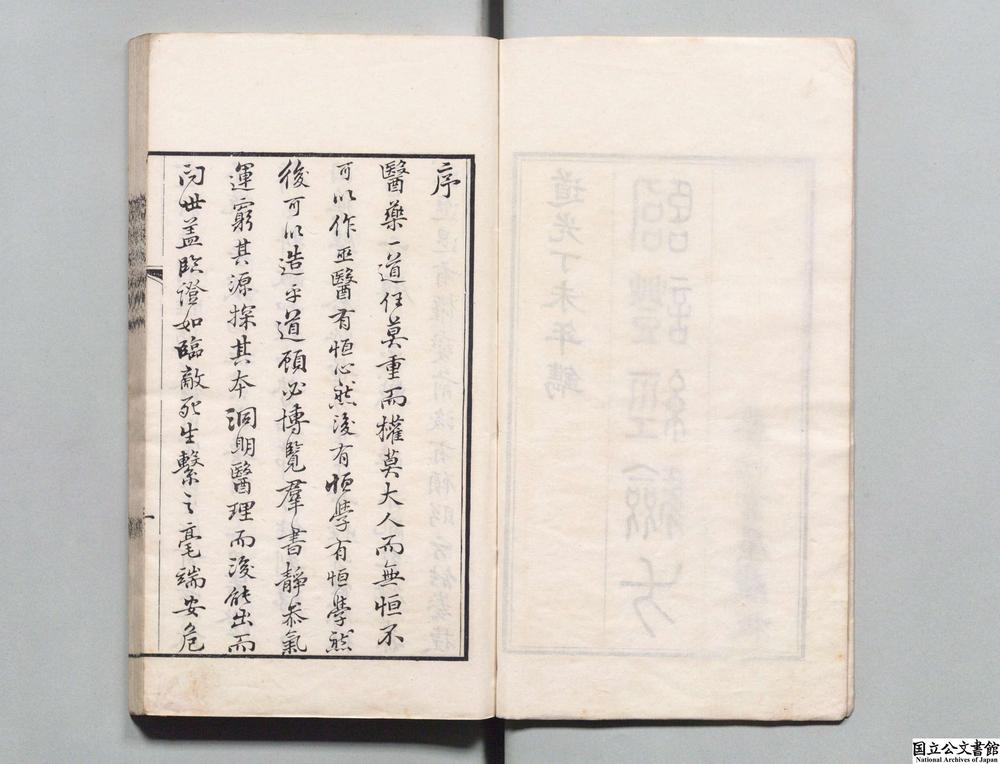 序
醫藥一道任莫重而權莫大人而無恒不
可以作巫醫有恒心然後有恒學有恒學然
後可以造乎道顧必博覽羣書靜參氣
運窮其源探其本洞明醫理而後能出而
問世蓋臨證如臨敵死生繫之毫端安危
道光丁未年鐫
国立公文書館
National Archives of Japan